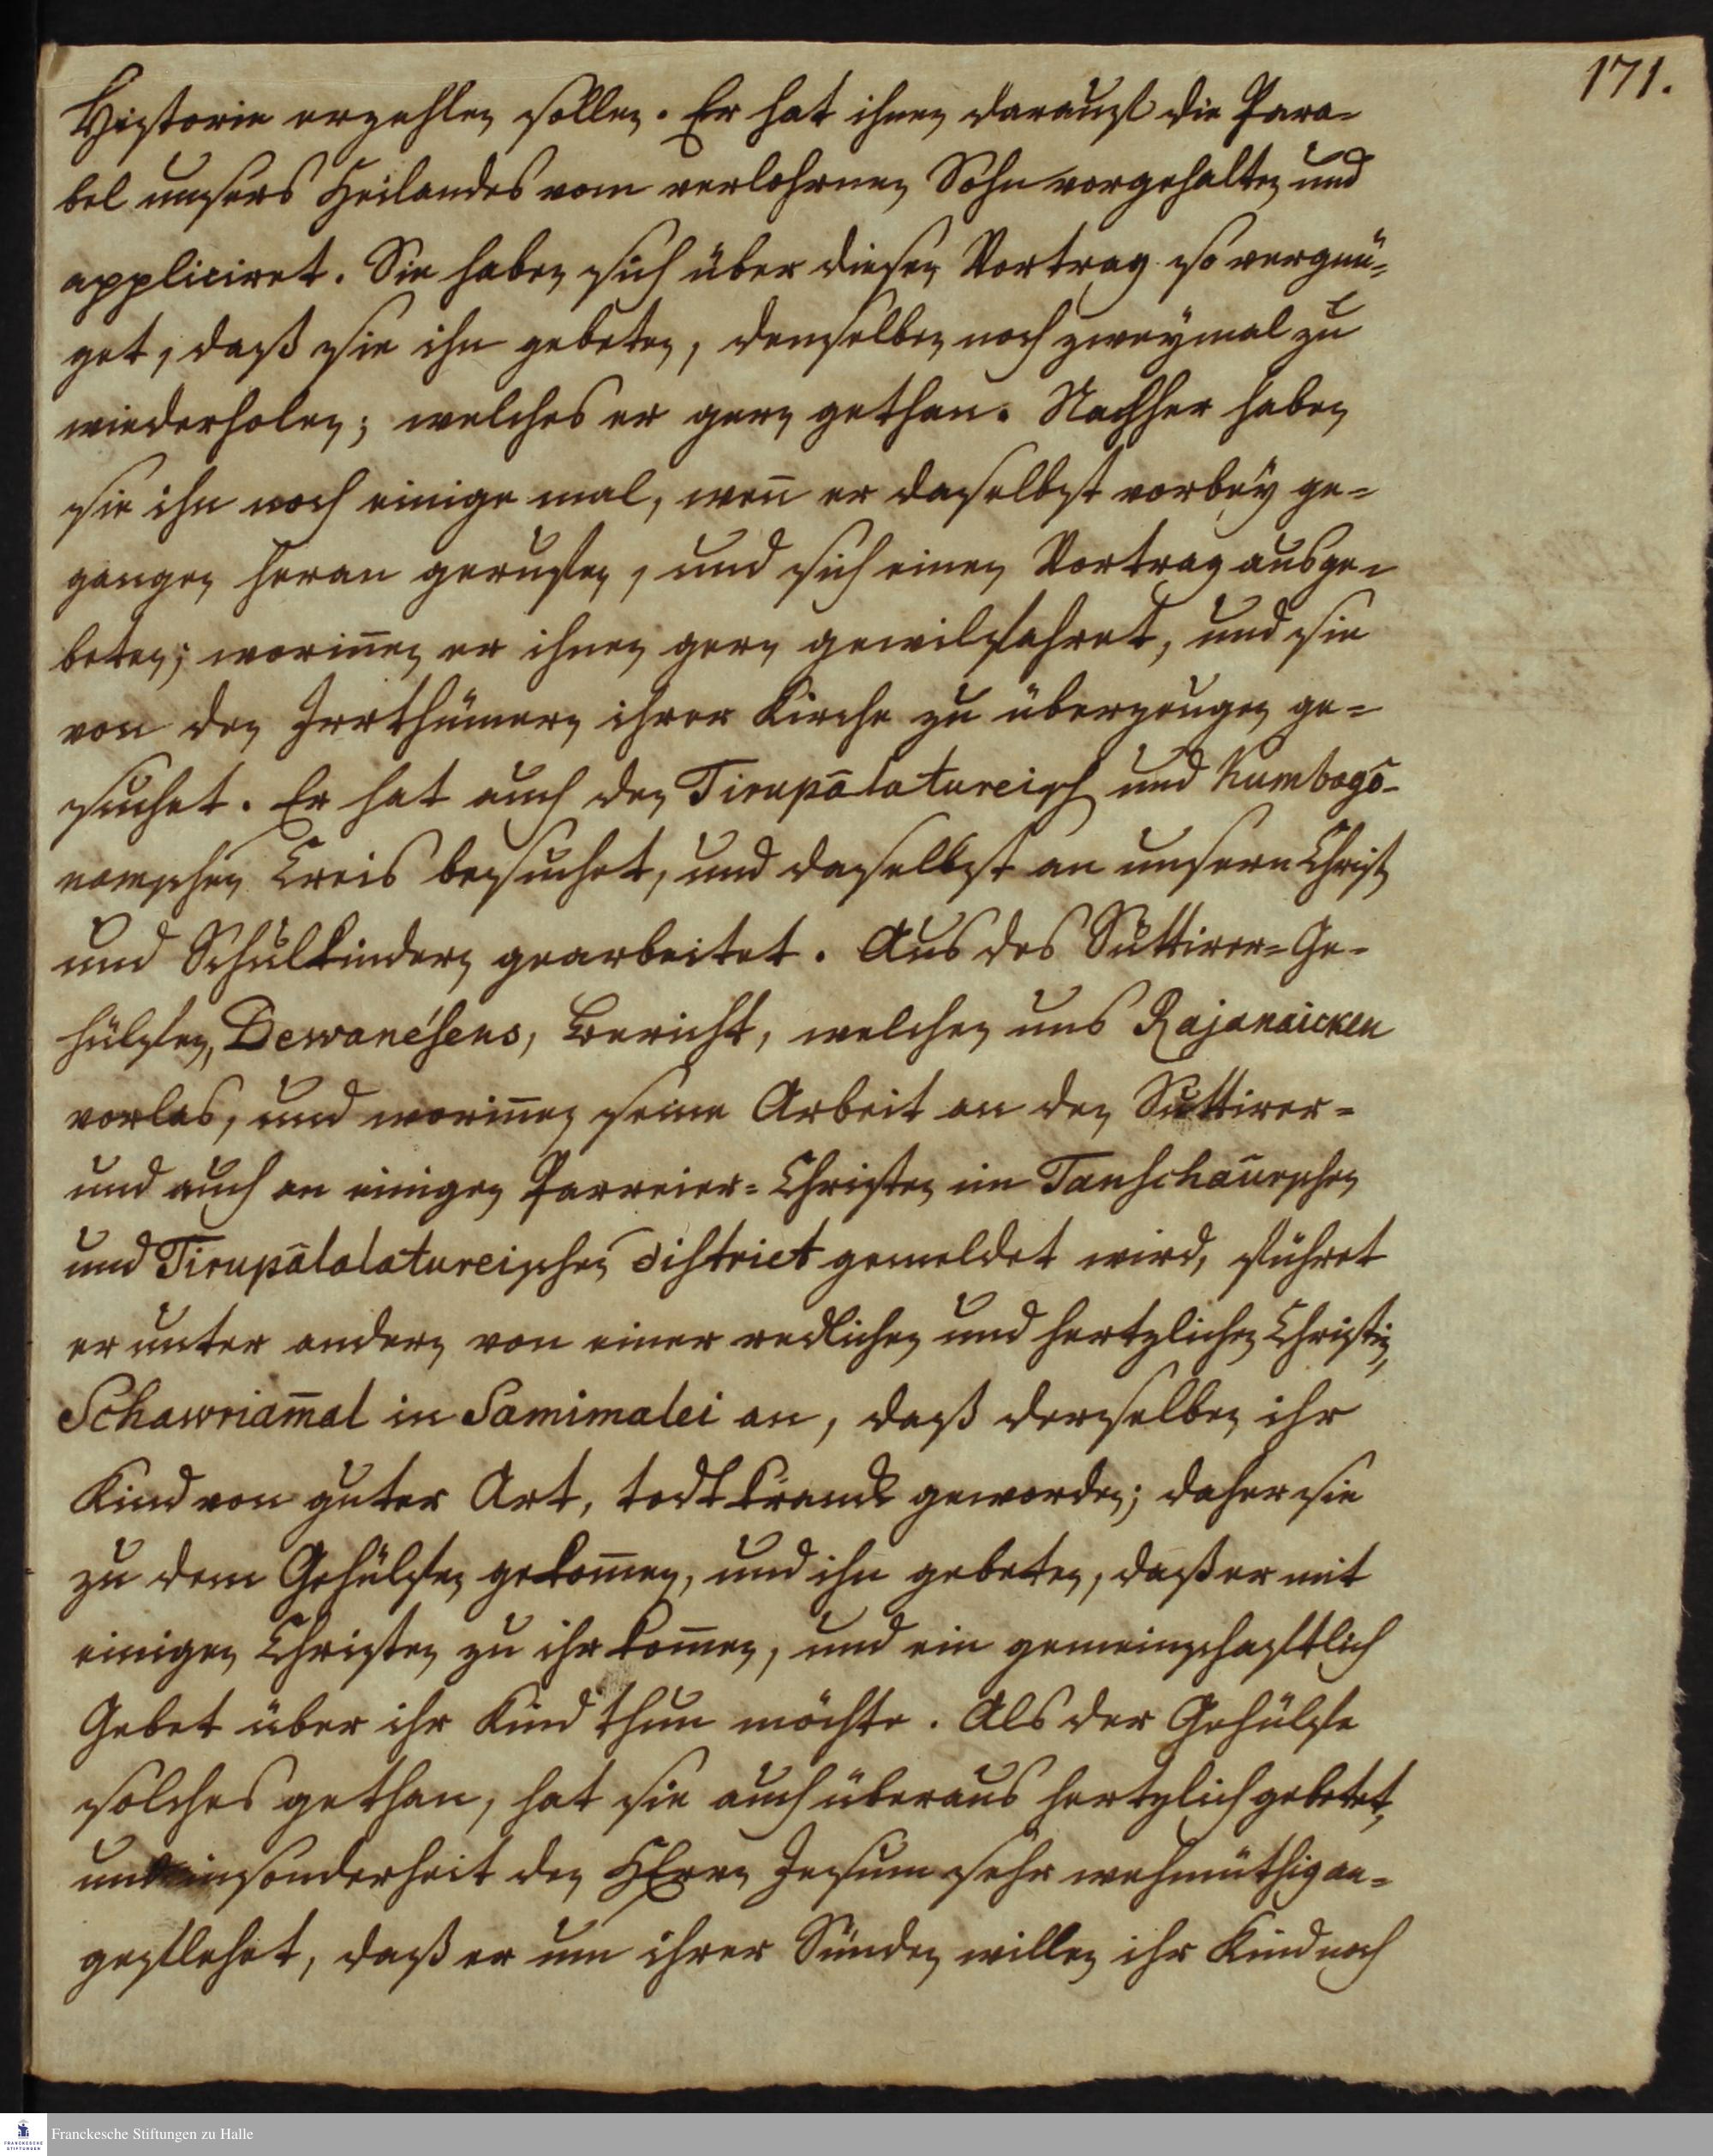 171.
Historie erzehlen sollen. Er hat ihnen darauf die Para-
bel unsers Heilandes vom verlohrnen Sohn vorgehalten und
appliciret. Sie haben sich über diesen Vortrag so vergnü-
get, daß sie ihn gebeten, denselben noch zweymal zu
wiederholen; welches er gern gethan. Nachher haben
sie ihn noch einige mal, weñ er daselbst vorbey ge-
gangen heran geruffen, und sich einen Vortrag ausge-
beten; woriñen er ihnen gern gewilfahret, und sie
von den Irrthümern ihrer Kirche zu überzeugen ge-
suchet. Er hat auch den Tirupālatureisch und Kumbagō-
namschen Creis besuchet, und daselbst an unsern Christ
und Schulkindern gearbeitet. Aus des Suttirer-Ge-
hülfen, Dewanésens, Bericht, welchen uns Rajanaicken
vorlas, und woriñen seine Arbeit an den Suttirer-
und auch an einigen Parreier-Christen im Tanschaurschen
und Tirupālalatureischen district gemeldet wird, führet
er unter andern von einer redlichen und hertzlichen Christin,
Schawriam̄al in Samimalei an, daß derselben ihr
Kind von guter Art, todtkranck geworden; daher sie
zu dem Gehülfen gekom̄en, und ihn gebeten, daß er mit
einigen Christen zu ihr kom̄en, und ein gemeinschaftlich
Gebet über ihr Kind thun möchte. Als der Gehülfe
solches gethan, hat sie auch überaus hertzlich gebetet,
und insonderheit den HErrn Jesum sehr wehmüthig an-
geflehet, daß er um ihrer Sünden willen ihr Kind noch
Franckesche Stiftungen zu Halle